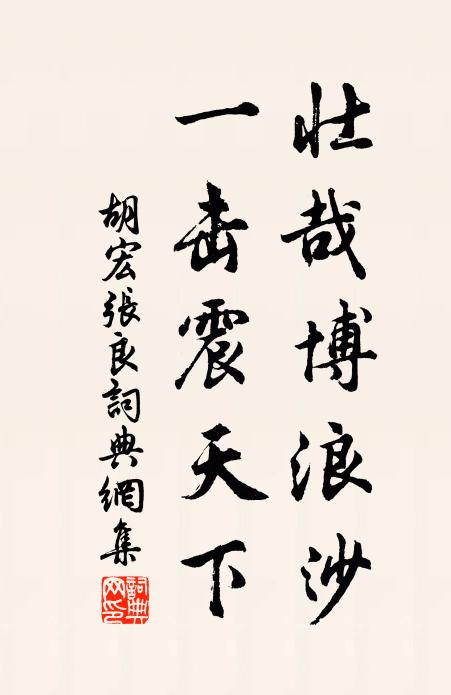 壮哉博浪沙
一击震天下
胡宏張良詞典網集
詞典網印